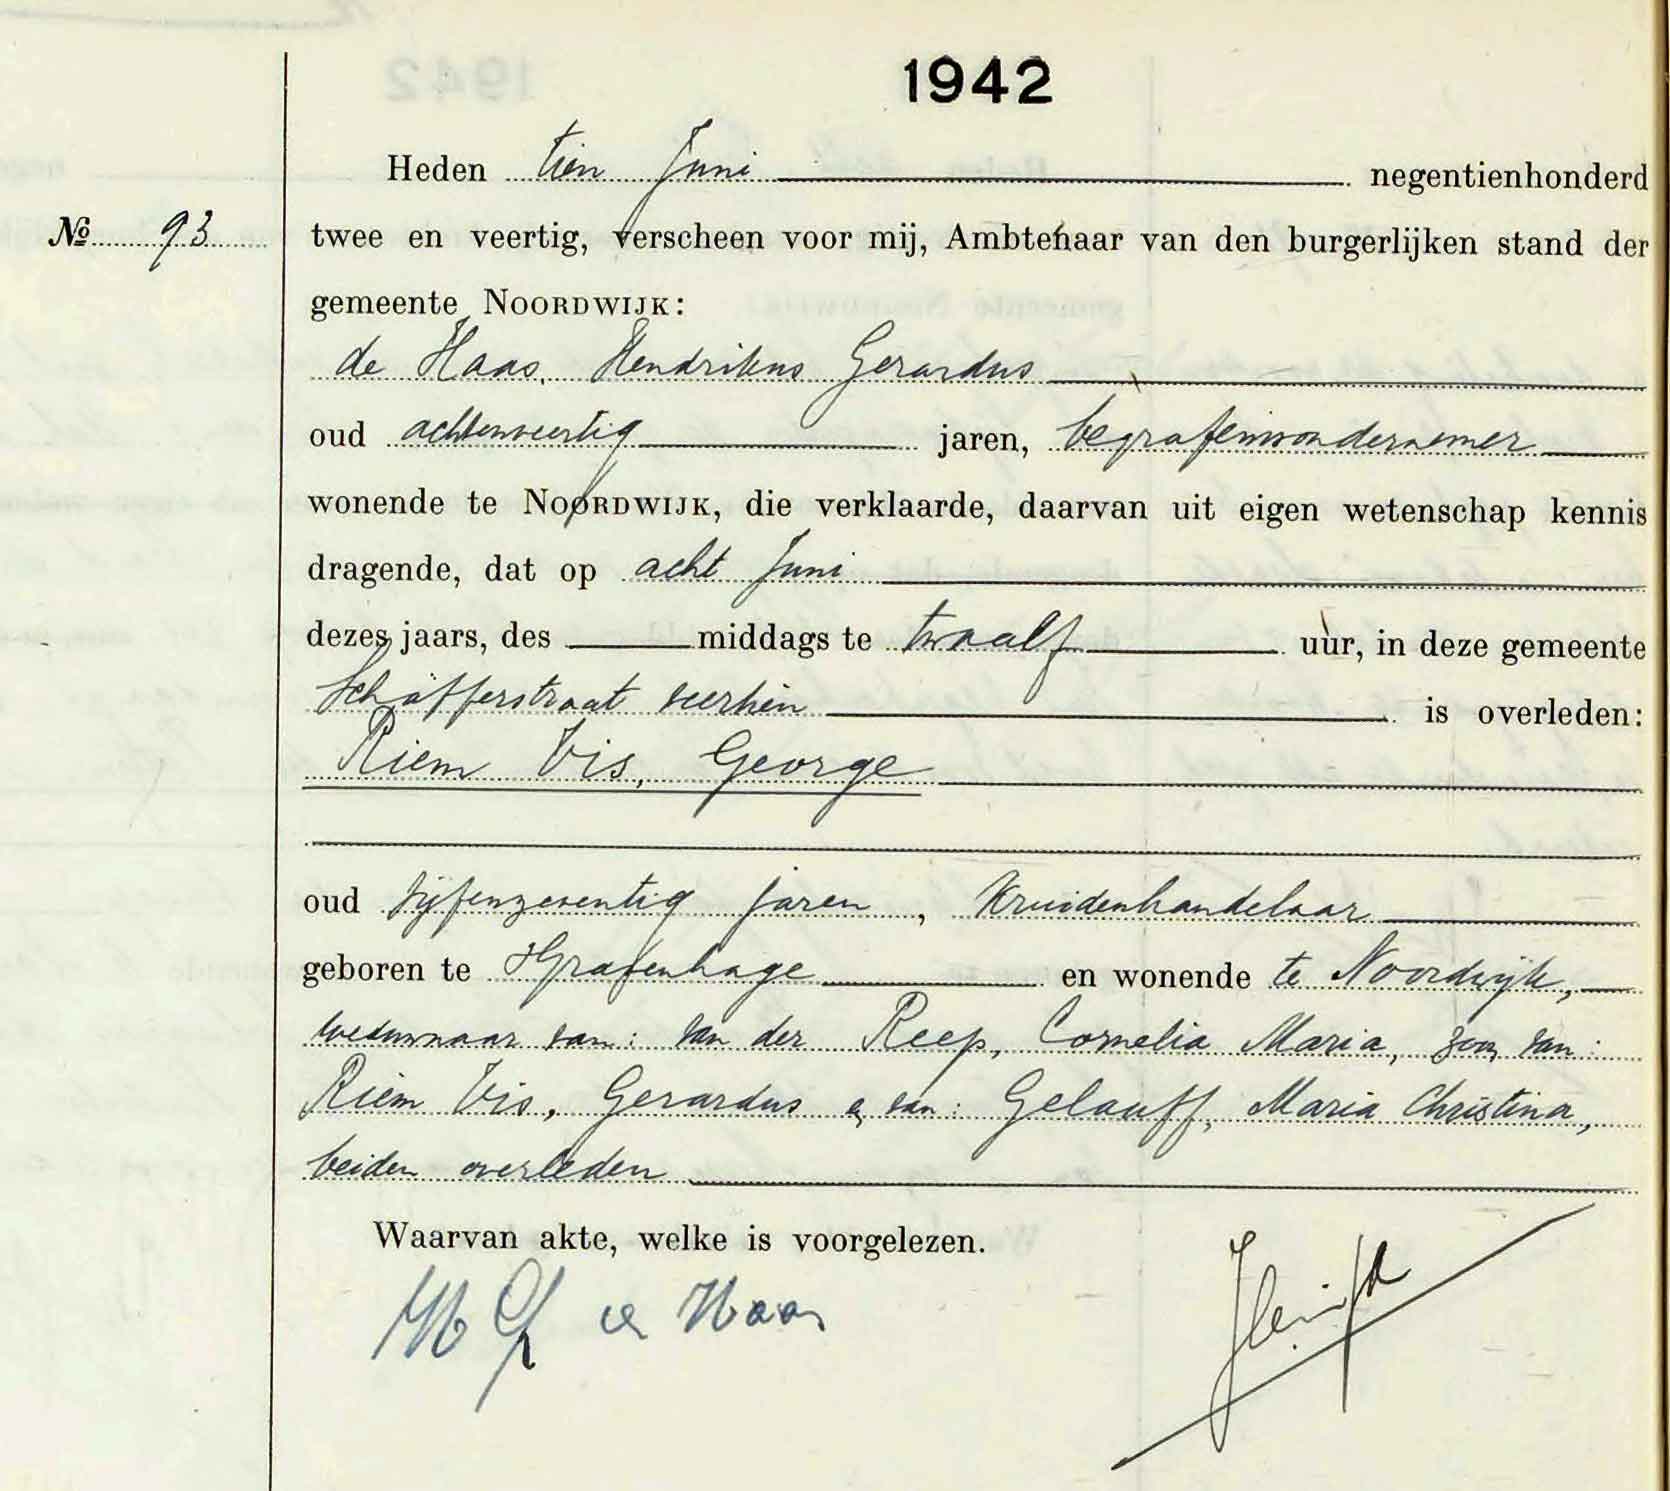 1942
Heden tien Juni negentienhonderd
No 93
twee en veertig, verscheen voor mij, Ambtenaar van den burgerlijken stand der
gemeente NOORDWIJK:
de Haas, Hendrikus Gerardus
oud achtenveertig jaren, begrafenisondernemer
wonende te NOORDWIJK, die verklaarde, daarvan uit eigen wetenschap kennis
dragende, dat op acht Juni
dezes jaars, des middags te twaalf uur, in deze gemeente
Schöfferstraat veertien is overleden:
Riem Vis, George
oud vijfenzeventig jaren, Kruidenhandelaar
geboren te 'sGravenhage en wonende te Noordwijk,
weduwnaar van: van der Reep, Cornelia Maria, zoon van:
Riem Vis, Gerardus en van: Gelauff, Maria Christina,
beiden overleden
Waarvan akte, welke is voorgelezen.
H G de Haas